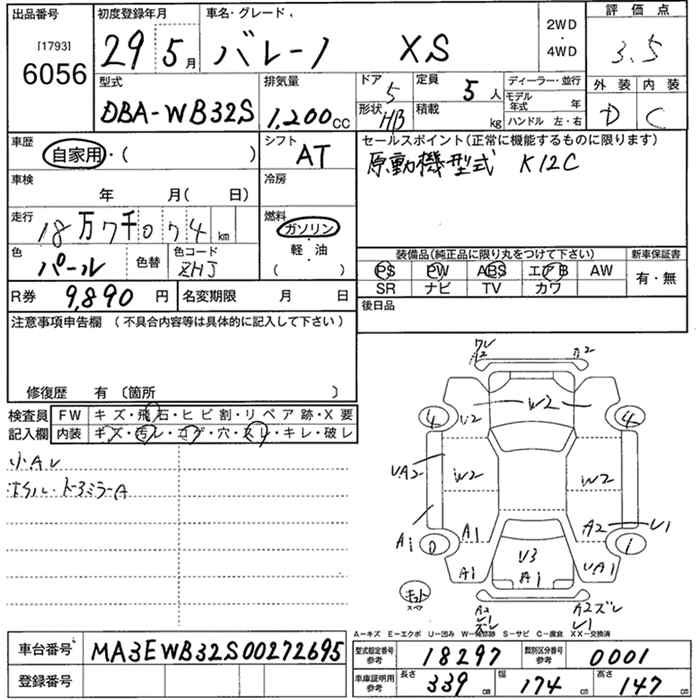 出品番号
[1793]
6056
初度登録年月
29 5月
車名・グレード
バレーノ XS
2WD
・
4WD
評価点
3.5
型式
DBA-WB32S
排気量
1,200cc
ドア 5
形状 HB
定員 5人
積載 kg
ディーラー・並行
モデル年式 年
ハンドル 左・右
外装 内装
D C
車歴
自家用・( )
シフト
AT
セールスポイント(正常に機能するものに限ります)
原動機型式 K12C
車検
年 月( 日)
冷房
走行
18万7千074km
燃料
ガソリン
・
軽・油
・
( )
色
パール
色替
色コード
ZHJ
装備品(純品品に限り丸をつけて下さい)
PS PW ABS エアB AW
SR ナビ TV カワ
新車保証書
有・無
R券 9,890円
名変期限 月 日
後日品
注意事項申告欄(不具合内容等は具体的に記入して下さい)
修復歴 有(箇所 )
検査員記入欄
FW キズ・飛石・ヒビ割・リペア跡・X要
内装 キズ・汚レ・コゲ・穴・スレ・キレ・破レ
小Aレ
ホイル・ドアミラーA
A2 2
W2
4 U2 4
UA2 W2 W2
A1 A1 A2 U1
0 U3 1
A1 A1 UA1
スペア
A2 ズレ A2ズレ
U1
A-キズ E-エクボ U-凹み W-補修跡 S-サビ C-腐食 XX-交換済
車台番号 MA3EWB32S00272695
登録番号
型式指定番号 参考 18297
類別区分番号 参考 0001
車庫証明用 参考
長さ 339cm
幅 174cm
高さ 147cm